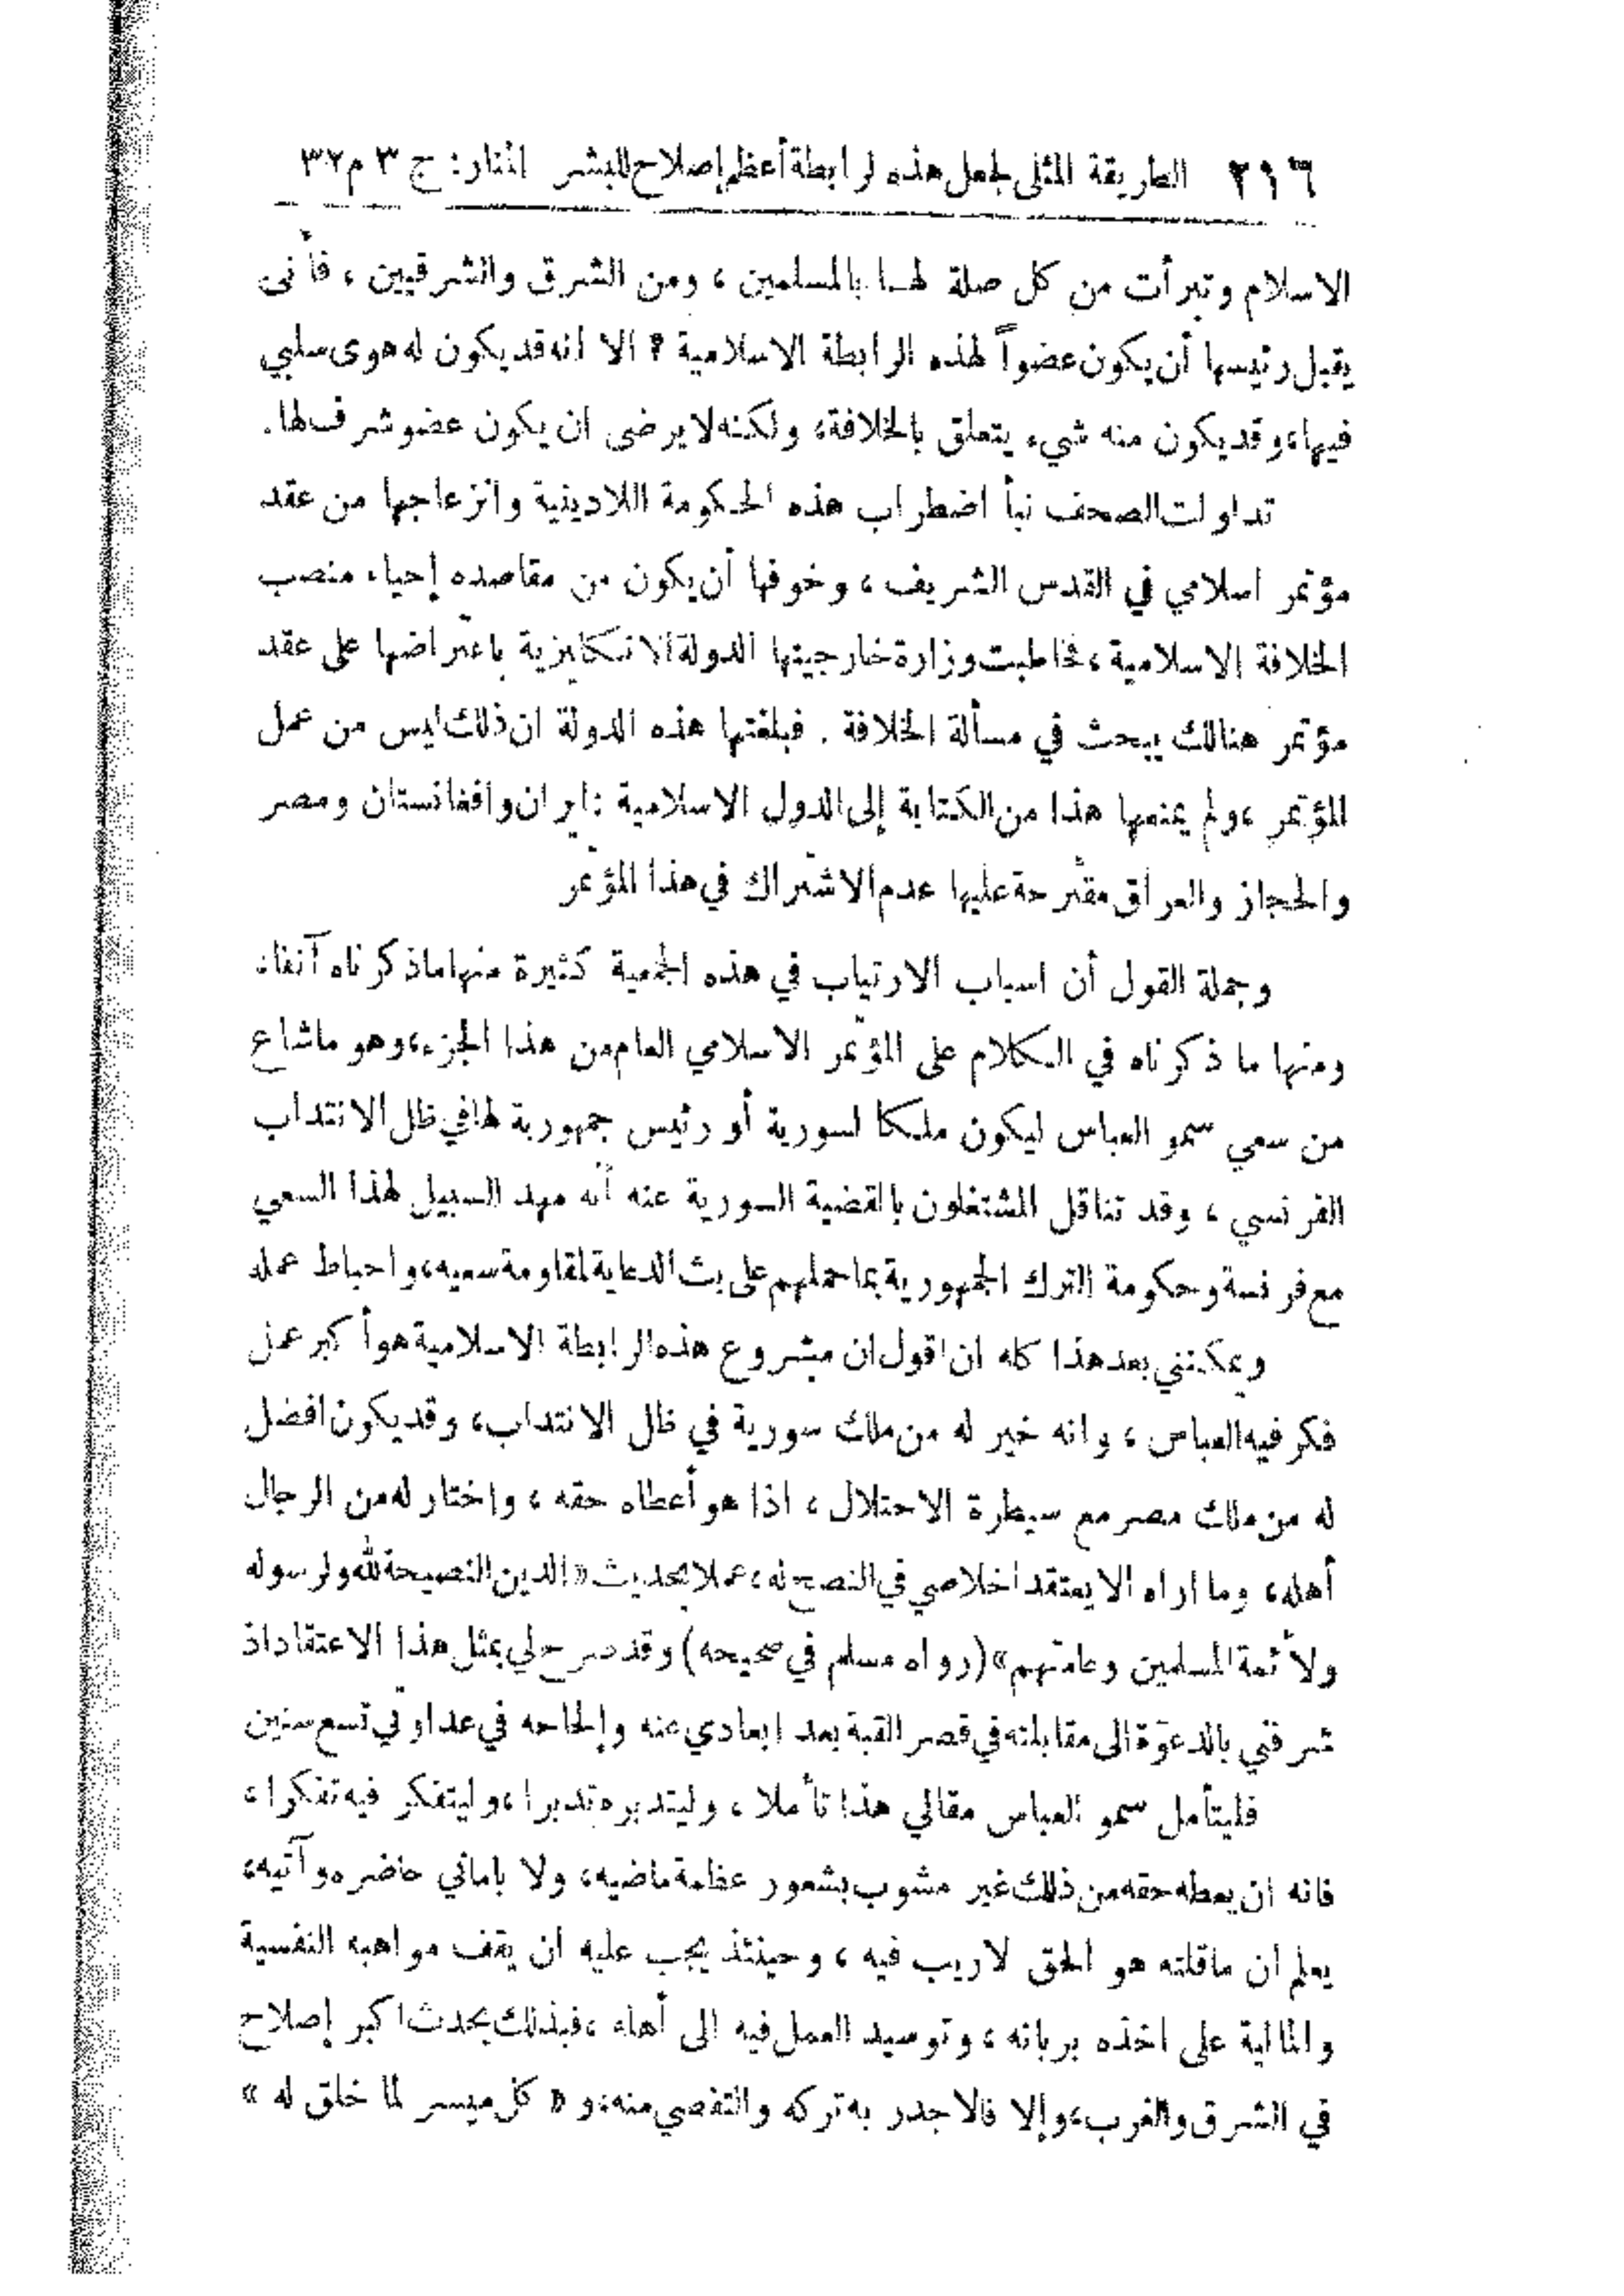 ٢١٦ الطريقة المثلى لجعل هذه لرابطة أعظم إصلاح للبشر المنار: ج ٣ م ٣٢
الاسلام وتبرأت من كل صلة لهـا بالمسلمين ، ومن الشرق والشرقيين ، فأنى
يقبل رئيسها أن يكون عضواً لهذه الرابطة الاسلامية ؟ الا انه قد يكون له هوى سلبي
فيها، وقد يكون منه شيء يتعلق بالخلافة، ولكنه لا يرضى ان يكون عضو شرف لها.
تداولت الصحف نبأ اضطراب هذه الحكومة اللادينية وانزعاجها من عقد
مؤتمر اسلامي في القدس الشريف ، وخوفها أن يكون من مقاصده إحياء منصب
الخلافة الاسلامية ، فخاطبت وزارة خارجيتها الدولة الانكليزية باعتراضها على عقد
مؤتمر هنالك يبحث في مسألة الخلافة . فبلغتها هذه الدولة ان ذلك ليس من عمل
المؤتمر ، ولم يمنعها هذا من الكتابة إلى الدول الاسلامية : ايران وافغانستان ومصر
والحجاز والعراق مقترحة عليها عدم الاشتراك في هذا المؤتمر
وجملة القول أن اسباب الارتياب في هذه الجمعية كثيرة منها ماذكرناه آنفا،
ومنها ما ذكرناه في الكلام على المؤتمر الاسلامي العام من هذا الجزء، وهو ماشاع
من سعي سمو العباس ليكون ملكا لسورية أو رئيس جمهورية لها في ظل الانتداب
الفرنسي ، وقد تناقل المشتغلون بالقضية السورية عنه أنه مهد السبيل لهذا السعي
مع فرنسة وحكومة الترك الجمهورية بما حملهم على بث الدعاية لمقاومة سعيه، واحباط عمله
ويمكنني بعد هذا كله ان اقول ان مشروع هذه الرابطة الاسلامية هو أكبر عمل
فكر فيه العباس ، وانه خير له من ملك سورية في ظل الانتداب، وقد يكون افضل
له من ملك مصر مع سيطرة الاحتلال ، اذا هو أعطاه حقه ، واختار له من الرجال
أهله، وما اراه الا يعتقد اخلاصي في النصح له ، عملا بحديث «الدين النصيحة لله ولرسوله
ولأئمة المسلمين وعامتهم» (رواه مسلم في صحيحه) وقد صرح لي بمثل هذا الاعتقاد اذ
شرفني بالدعوة الى مقابلته في قصر القبة بعد ابعادي عنه وإلحاحه في عداوتي تسع سنين
فليتأمل سمو العباس مقالي هذا تأملا ، وليتدبره تدبرا ، وليتفكر فيه تفكرا ،
فانه ان يعطه حقه من ذلك غير مشوب بشعور عظمة ماضيه، ولا باماني حاضره وآتيه،
يعلم ان ماقلته هو الحق لاريب فيه ، وحينئذ يجب عليه ان يقف مواهبه النفسية
والمالية على اخذه بربانه ، وتوسيد العمل فيه الى أهله ، فبذلك يحدث اكبر إصلاح
في الشرق والغرب، وإلا فالاجدر به تركه والتفصي منه، و « كل ميسر لما خلق له »